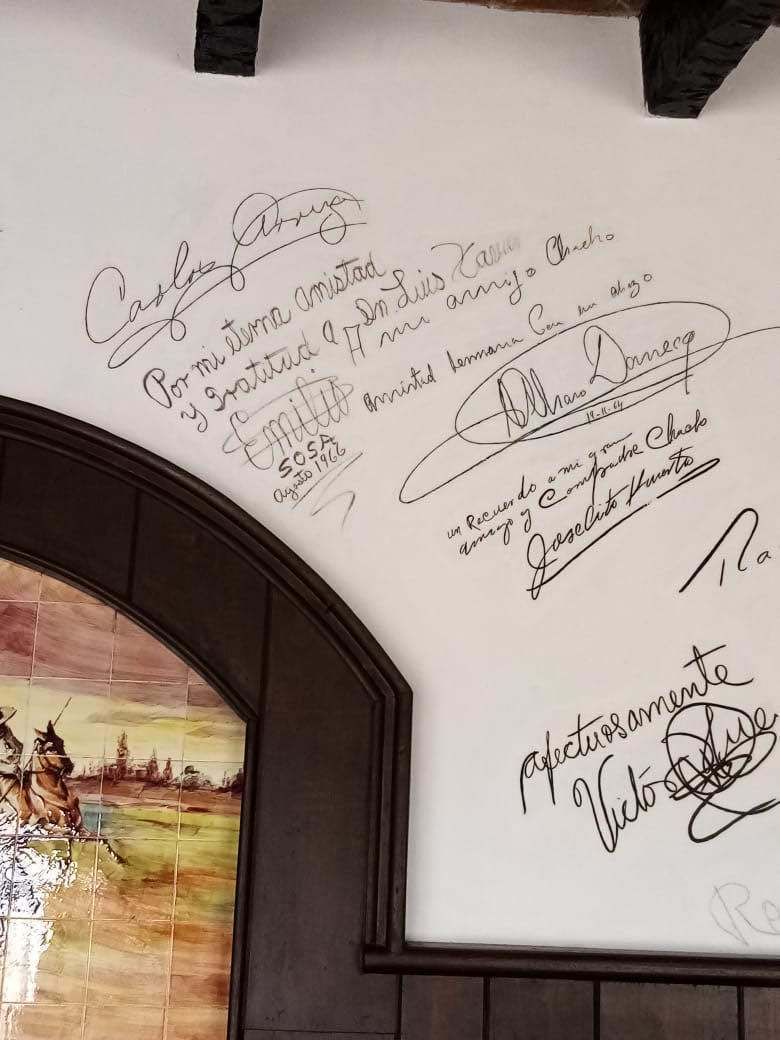 Carlos Arruza
Por mi eterna amistad
y gratitud a Dn. Luis
Emilio
SOSA
Agosto 1966
A mi amigo Chucho
amistad hermana Con un abrazo
Alvaro Domecq
19-11-64
un Recuerdo a mi gran
amigo y Compadre Chucho
Joselito Huerta
Ra
afectuosamente
Victó
Ra